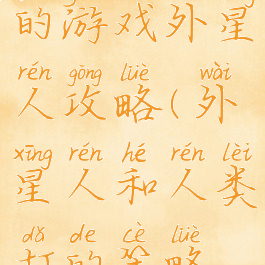 的游戏外星
rén gōng lüè wài
人攻略(外
xīng rén hé rén lèi
星人和人类
dǎ de cè lüè
打的策略